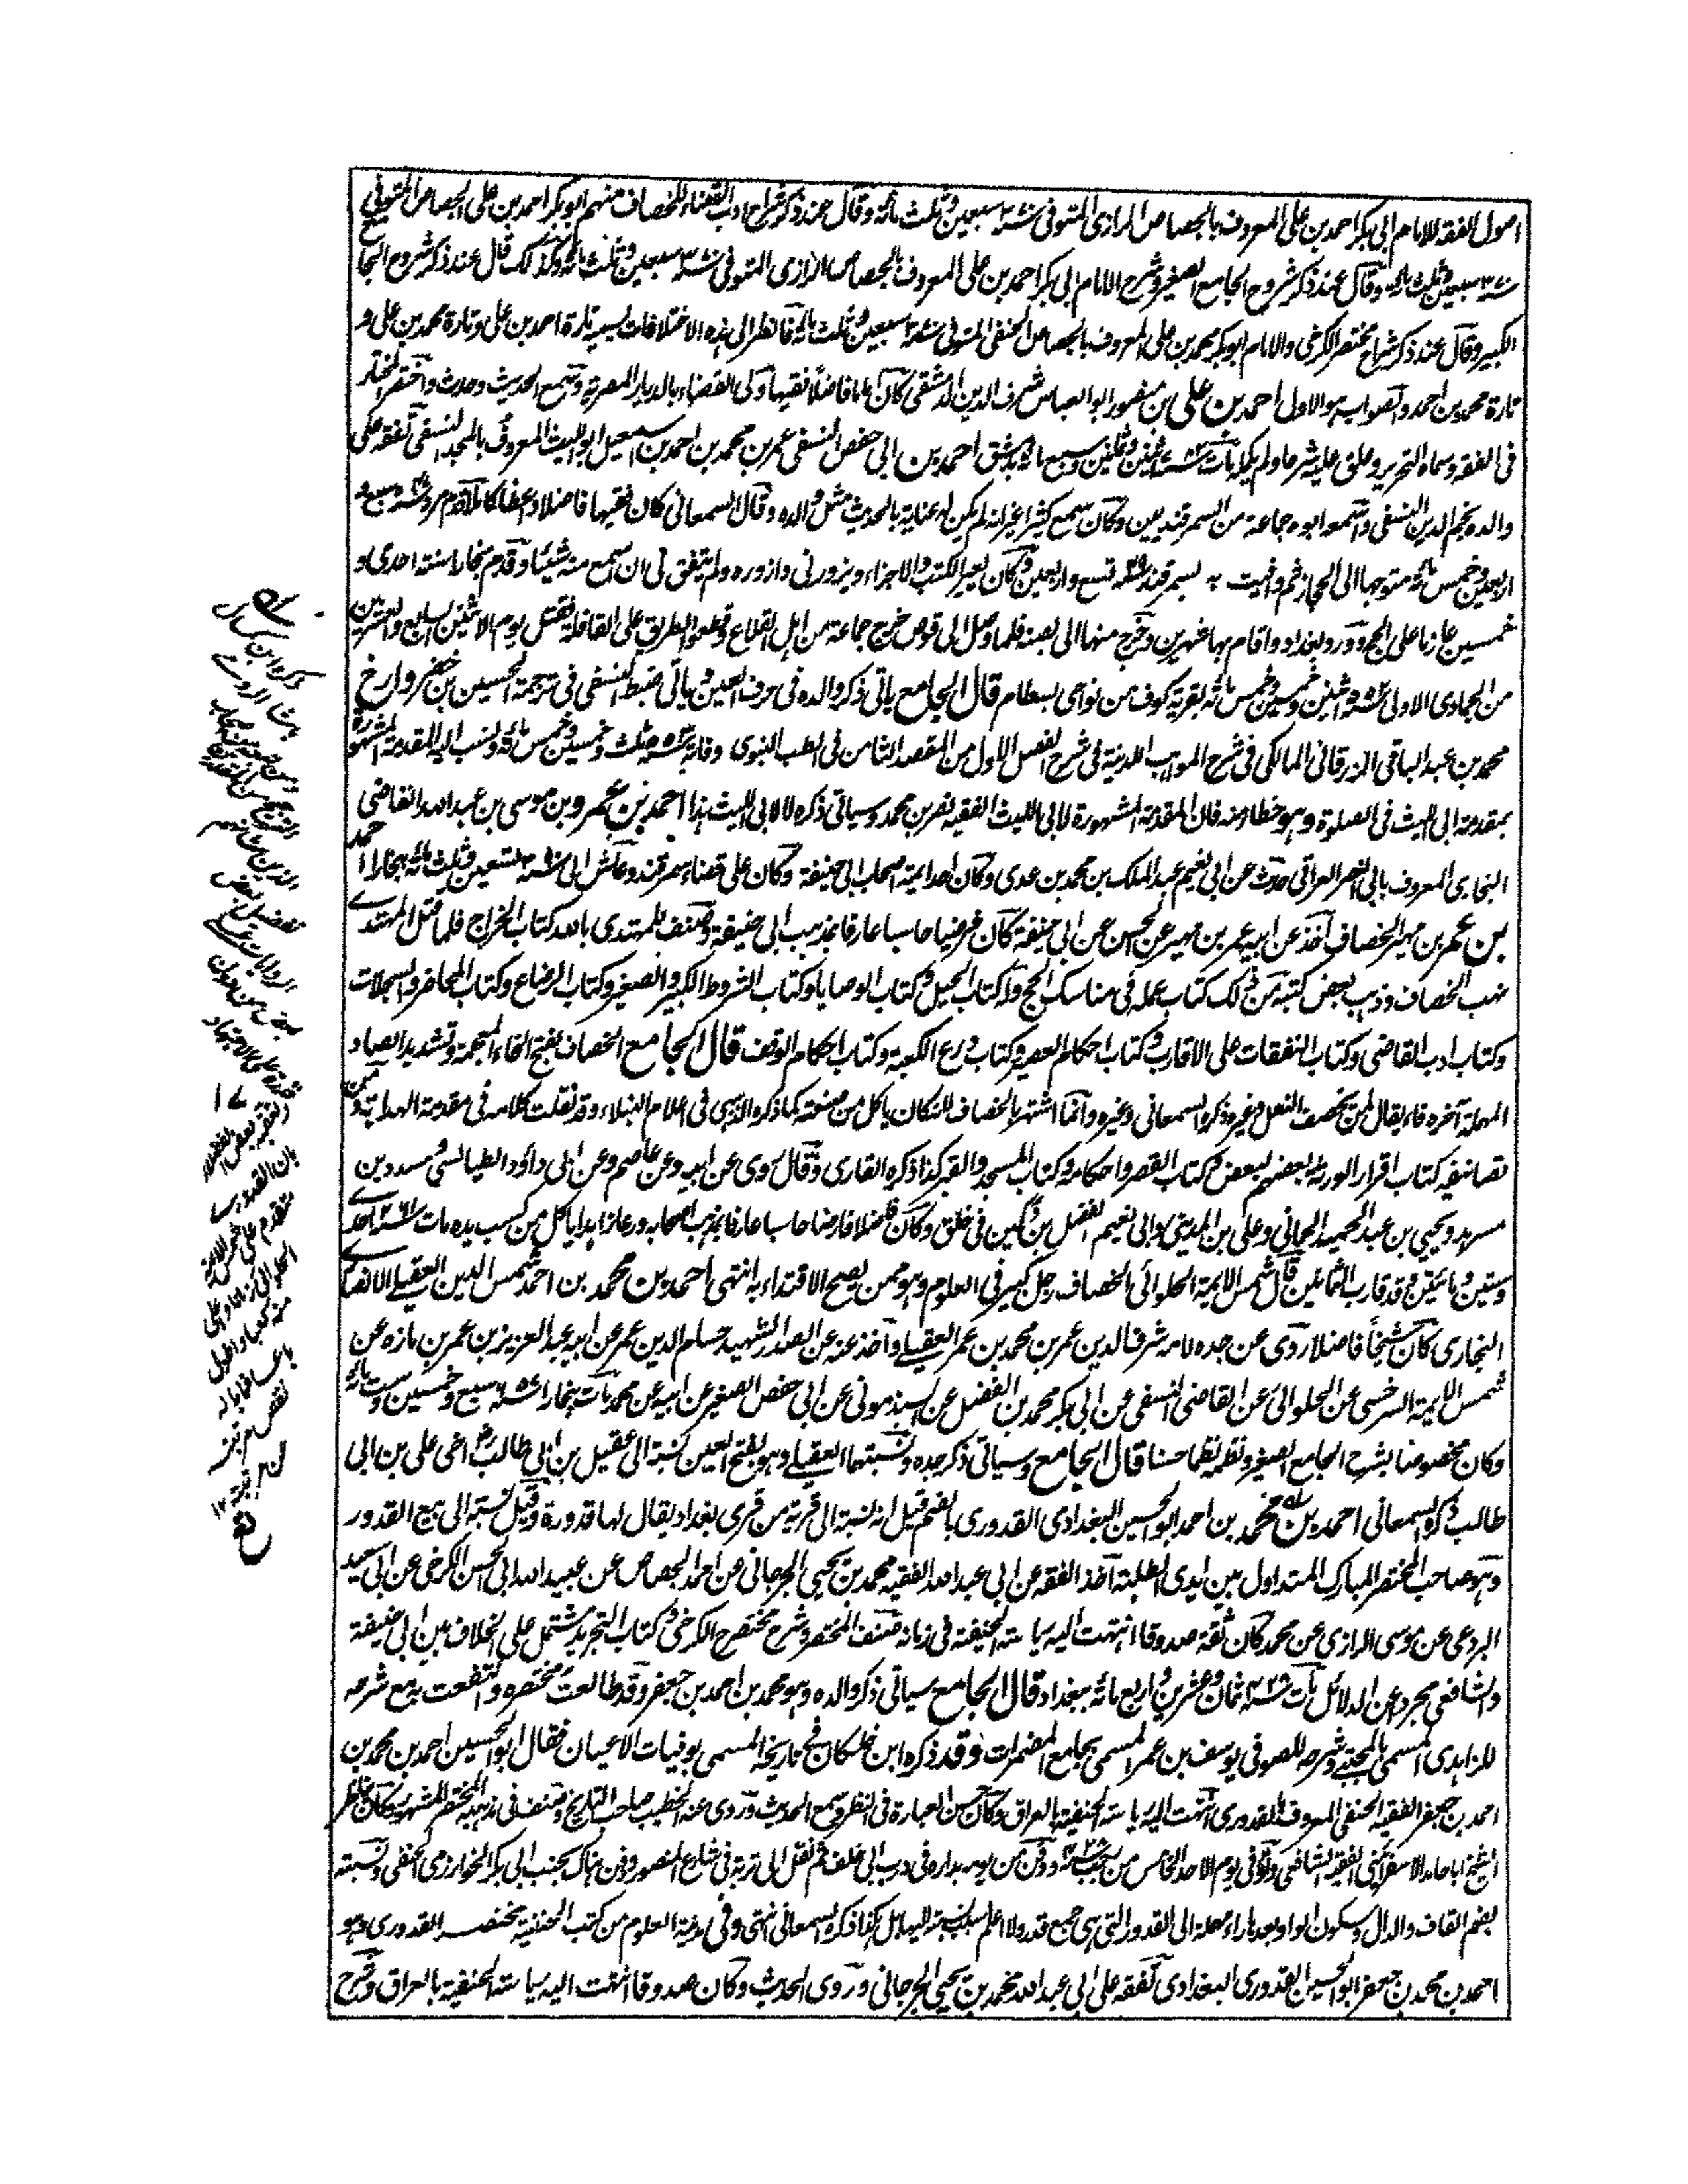 اصول الفقه للامام ابى بكر احمد بن على المعروف بالجصاص الرازى المتوفى سنه ٣٧٠ سبعين وثلث مائة وقال عند ذكر شراح ادب القضاء للخصاف منهم ابو بكر احمد بن على الجصاص المتوفى
سنة سبعين وثلث مائة وقال عند ذكر شروح الجامع الصغير وشرح الامام ابى بكر احمد بن على المعروف بالجصاص الرازى المتوفى سنه ٣٧٠ سبعين وثلث مائة وكذلك قال عند ذكر شروح الجامع
الكبير وقال عند ذكر شراح مختصر الكرخى والامام ابو بكر محمد بن على المعروف بالجصاص الحنفى المتوفى سنه ٣٧٠ سبعين وثلث مائة فانظر الى هذه الاختلافات يسميه تارة احمد بن على وتارة محمد بن على و
تارة محمد بن احمد والصواب هو الاول احمد بن على بن منصور ابو العباس شرف الدين الدمشقى كان اماما فاضلا فقيها ولى القضاء بالديار المصرية وسمع الحديث وحدث واختصر المختار
فى الفقه وسماه التحرير وعلق عليه شرحا ولم يكمله مات سنه ٧٨٢ اثنين وثمنين وسبع مائة بدمشق احمد بن ابى حفص النسفى عمر بن محمد بن احمد بن اسمعيل ابو الليث المعروف بالمجد النسفى تفقه على
والده نجم الدين النسفى واسمعه ابوه جماعة من السمرقنديين وكان سمع كثيرا غير انه لم يكن له عناية بالحديث مثل والده وقال السمعانى كان فقيها فاضلا واعظا كاملا قدم مرو سنه سبع و
اربعين وخمس مائة متوجها الى الحجاز ثم وافيت به بسمرقند سنه تسع واربعين وكان يعير الكتب والاجزاء ويزورنى وازوره ولم يتفق لى ان اسمع منه شيئا وقدم بخارا سنة احدى و
خمسين عازما على الحج وورد بغداد واقام بها شهرين وخرج منها الى بصنه فلما وصل الى قومس خرج جماعة من اهل القلاع وقطعوا الطريق على القافلة فقتل يوم الاثنين السابع والعشرين
من الجمادى الاولى سنه ٥٥٢ اثنين وخمسين وخمس مائة بقرية كوف من نواحى بسطام قال الجامع ياتى ذكر والده فى حرف العين وياتى ضبط النسفى فى ترجمة الحسين بن خضر وارخ
محمد بن عبد الباقى الزرقانى المالكى فى شرح المواهب اللدنية فى شرح الفصل الاول من المقصد الثامن فى الطب النبوى وفاته سنه ٥٥٣ ثلث وخمسين وخمس مائة ونسب اليه المقدمة المشهورة
بمقدمة ابى الليث فى الصلوة وهو خطا منه فان المقدمة المشهورة لابى الليث الفقيه نصر بن محمد وسياتى ذكره لا لابى الليث هذا احمد بن عمرو بن موسى بن عبد الله القاضى
البخارى المعروف بابى النصر العراقى حدث عن ابى نعيم عبد الملك بن محمد بن عدى وكان احد ايمة اصحاب ابى حنيفة وكان على قضاء سمرقند وعاش الى سنه تسعين وثلث مائة ببخارا احمد
بن عمر بن مهير الخصاف اخذ عن ابيه عمر بن مهير عن الحسن عن ابى حنيفة كان فرضيا حاسبا عارفا بمذهب ابى حنيفة وصنف للمهتدى بالله كتاب الخراج فلما قتل المهتدى
نهب الخصاف وذهب بعض كتبه من ذلك كتاب عمله فى مناسك الحج وله كتاب الحيل وكتاب الوصايا وكتاب الشروط الكبير والصغير وكتاب الرضاع وكتاب المحاضر والسجلات
وكتاب ادب القاضى وكتاب النفقات على الاقارب وكتاب احكام العصير وكتاب ذرع الكعبة وكتاب احكام الوقف قال الجامع الخصاف بفتح الخاء المعجمة وتشديد الصاد
المهملة آخره فاء يقال لمن يخصف النعل وغيره ذكره السمعانى وغيره وانما اشتهر بالخصاف لانه كان ياكل من صنعته كما ذكره الذهبى فى اعلام النبلاء وقد نقلت كلامه فى مقدمة الهداية ومن
تصانيفه كتاب اقرار الورثة بعضهم لبعض وكتاب القصر واحكامه وكتاب المسجد والقبر كذا ذكره القارى وقال روى عن ابيه وعن عاصم وعن ابى داؤد الطيالسى ومسدد بن
مسرهد ويحيى بن عبد الحميد الحمانى وعلى بن المدينى وابى نعيم الفضل بن دكين فى خلق وكان فاضلا فارضا حاسبا عارفا بمذهب اصحابه ورعا زاهدا ياكل من كسب يده مات سنه ٢٦١ احدى
وستين ومائتين وقد قارب الثمانين قال شمس الايمة الحلوائى الخصاف رجل كبير فى العلوم وهو ممن يصح الاقتداء به انتهى احمد بن محمد بن احمد شمس الدين العقيلى الانصارى
البخارى كان شيخا فاضلا روى عن جده لامه شرف الدين عمر بن محمد بن عمر العقيلى واخذ عنه عن الصدر الشهيد حسام الدين عمر عن ابيه عبد العزيز بن عمر بن مازه عن
شمس الايمة السرخسى عن الحلوائى عن القاضى النسفى عن ابى بكر محمد بن الفضل عن السبذمونى عن ابى حفص الصغير عن ابيه عن محمد مات ببخارا سنه ٦٥٧ سبع وخمسين وست مائة
وكان مخصوصا بشرح الجامع الصغير ونظمه نظما حسنا قال الجامع وسياتى ذكر جده ونسبتهما العقيلى وهو بفتح العين نسبة الى عقيل بن ابى طالب اخى على بن ابى
طالب ذكره السمعانى احمد بن محمد بن احمد ابو الحسين البغدادى القدورى بالضم قيل انه نسبة الى قرية من قرى بغداد يقال لها قدورة وقيل نسبة الى بيع القدور
وهو صاحب المختصر المبارك المتداول بين ايدى الطلبة اخذ الفقه عن ابى عبد الله الفقيه محمد بن يحيى الجرجانى عن احمد الجصاص عن عبيد الله ابى الحسن الكرخى عن ابى سعيد
البردعى عن موسى الرازى عن محمد كان ثقة صدوقا انتهت اليه رياسة الحنيفة فى زمانه صنف المختصر وشرح مختصر الكرخى وكتاب التجريد مشتمل على الخلاف بين ابى حنيفة
والشافعى مجردا عن الدلائل مات سنه ٤٢٨ ثمان وعشرين واربع مائة ببغداد قال الجامع سياتى ذكر والده وهو محمد بن احمد بن جعفر وقد طالعت مختصره وانتفعت به مع شرحه
للزاهدى المسمى بالمجتبى وشرحه للصوفى يوسف بن عمر المسمى بجامع المضمرات وقد ذكره ابن خلكان فى تاريخه المسمى بوفيات الاعيان فقال ابو الحسين احمد بن محمد بن
احمد بن جعفر الفقيه الحنفى المعروف بالقدورى انتهت اليه رياسة الحنفية بالعراق وكان حسن العبارة فى النظر وسمع الحديث وروى عنه الخطيب صاحب التاريخ وصنف فى مذهبه المختصر المشهور وكان يناظر
الشيخ ابا حامد الاسفرائنى الفقيه الشافعى وتوفى يوم الاحد الخامس من رجب سنه ٤٢٨ ودفن من يومه بداره فى درب ابى خلف ثم نقل الى تربة فى شارع المنصور ودفن هناك بجنب ابى بكر الخوارزمى الحنفى ونسبته
بضم القاف والدال وسكون الواو بعدها راء مهملة الى القدور التى هى جمع قدر ولا اعلم سبب نسبته اليها بل هكذا ذكره السمعانى انتهى وفى مدينة العلوم من كتب الحنفية مختصر القدورى وهو
احمد بن محمد بن جعفر ابو الحسين القدورى البغدادى تفقه على ابى عبد الله محمد بن يحيى الجرجانى وروى الحديث وكان صدوقا انتهت اليه رياسة الحنفية بالعراق وشرح
ذكره ابن كمال